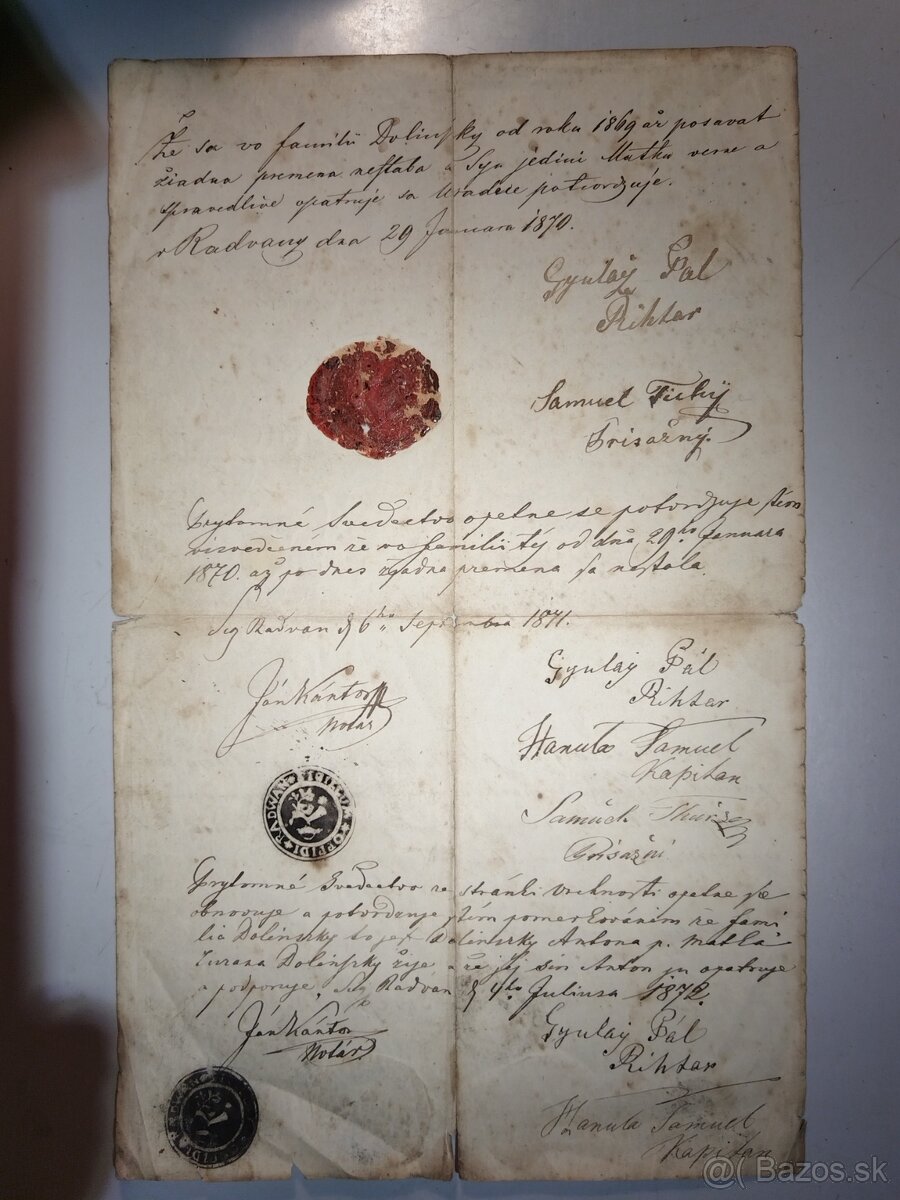 Že sa vo familii Dolinsky od roku 1869 až posavat
žiadna premena nestala a Syn jedini Matku verne a
spravedlive opatruje sa Uradne potvrdzuje.
v Radvany dna 29 Januara 1870.
Gyulaÿ Pal
Rihtar
Samuel Tichÿ
Prisažnÿ
Prytomné Svedectvo opetne se potvrdzuje
že vo familii téj od dna 29ho Januara
1870. až po dnes zjadna premena sa nestala.
Sig Radvan d 6ho Septembra 1871.
Ján Kántor
Notár
Gyulaÿ Pál
Rihtar
Hanula Samuel
Kapitan
Samuel
Prisažni
RADWAN OPPIDI
Prytomné Svedectvo ze stránki Vrchnosti opetne sa
obnovuje a potvrdzuje stím pomerkováním že fami
lia Dolinszky to jest Dolinszky Antona p. Matka
Zuzana Dolinszky žije a že jej sin Anton ju opatruje
a podporuje. Sig Radván d 4to Juliusa 1872.
Ján Kántor
Notár
Gyulaÿ Pál
Rihtar
Hanula Samuel
Kapitan
@( Bazos.sk